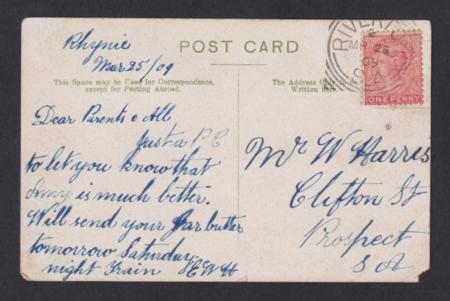 Rhynie
Mar 25/09
POST CARD
This Space may be Used for Correspondence,
except for Posting Abroad.
The Address
Written
Dear Parents & All
Just a P C
to let you know that
is much better.
Will send your Jar butter
tomorrow Saturday
night Train E W H
RIVER
MR 26
09
S.A
ONE PENNY
Mr W Harris
Clifton St
Prospect
S A